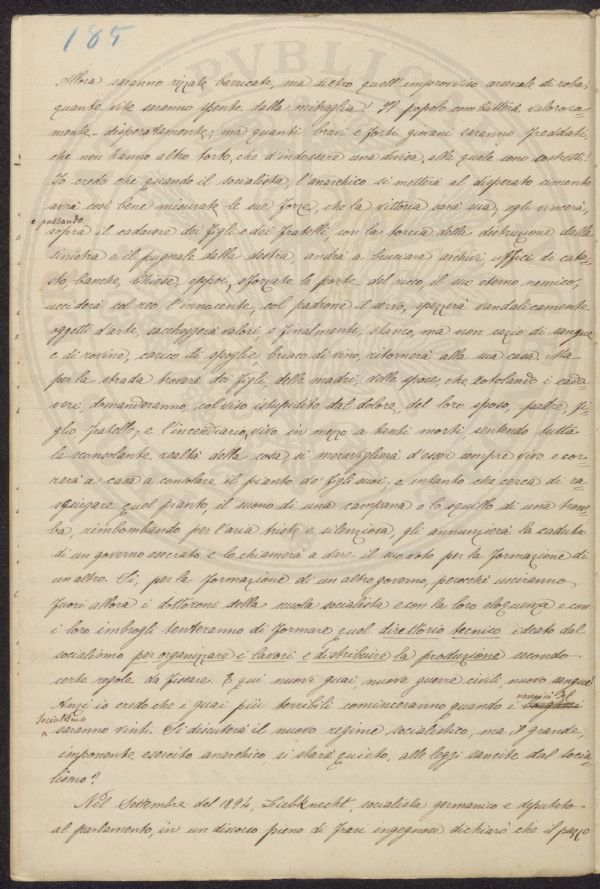 185
Allora saranno rizzate barricate, ma dietro quell'improvvisto arsenale di roba,
quante vite saranno spente dalla mitraglia! Il popolo combatterà valorosa-
mente - disperatamente; ma quanti bravi e forti giovani saranno freddati,
che non hanno altro torto, che d'indossare una divisa, alla quale sono costretti!
Io credo che quando il socialista, l'anarchico si metterà al disperato cimento
avrà così bene misurate le sue forze, che la vittoria sarà sua; egli vincerà,
e passando
sopra il cadavere dei figli e dei fratelli, con la torcia della distruzione dalla
sinistra e il pugnale dalla destra, andrà a bruciare archivi, uffici di cata-
sto, banche, Chiese, eppoi, sforzate le porte del ricco il suo eterno nemico,
ucciderà col reo l'innocente, col padrone il servo, spezzerà vandalicamente
oggetti d'arte, saccheggerà valori e finalmente, stanco, ma non sazio di sangue
e di rovine, carico di spoglie, briaco di vino, ritornerà alla sua casa. Ma
per la strada troverà dei figli, delle madri, delle spose, che rotolando i cada-
veri, domanderanno, col viso istupidito dal dolore, del loro sposo, padre, fi-
glio, fratello; e l'incendiario, vivo in mezzo a tanti morti, sentendo tutta
la sconsolante realtà della cosa si meraviglierà d'esser sempre vivo e cor-
rerà a casa a consolare il pianto de' figli suoi, e intanto che cerca di ra-
sciugare quel pianto, il suono di una campana o lo squillo di una trom-
ba, rimbombando per l'aria triste e silenziosa, gli annunzierà la caduta
di un governo esecrato e lo chiamerà a dare il suo voto per la formazione di
un altro. Sì, per la formazione di un altro governo, perocchè usciranno
fuori allora i dottoroni della scuola socialista e con la loro eloquenza e con
i loro imbrogli tenteranno di formare quel direttorio tecnico ideato dal
socialismo per organizzare i lavori e distribuire la produzione secondo
certe regole da fissare. E qui nuovi guai, nuove guerre civili, nuovo sangue
Anzi io credo che i guai più terribili cominceranno quando i
nemici del
socialismo
saranno vinti. Si discuterà il nuovo regime socialistico, ma il grande,
imponente esercito anarchico, si starà quieto, alle leggi sancite dal socia-
lismo?
Nel Settembre del 1894, Liebknecht, socialista germanico e deputato
al parlamento, in un discorso pieno di frasi ingegnose dichiarò che il pazzo